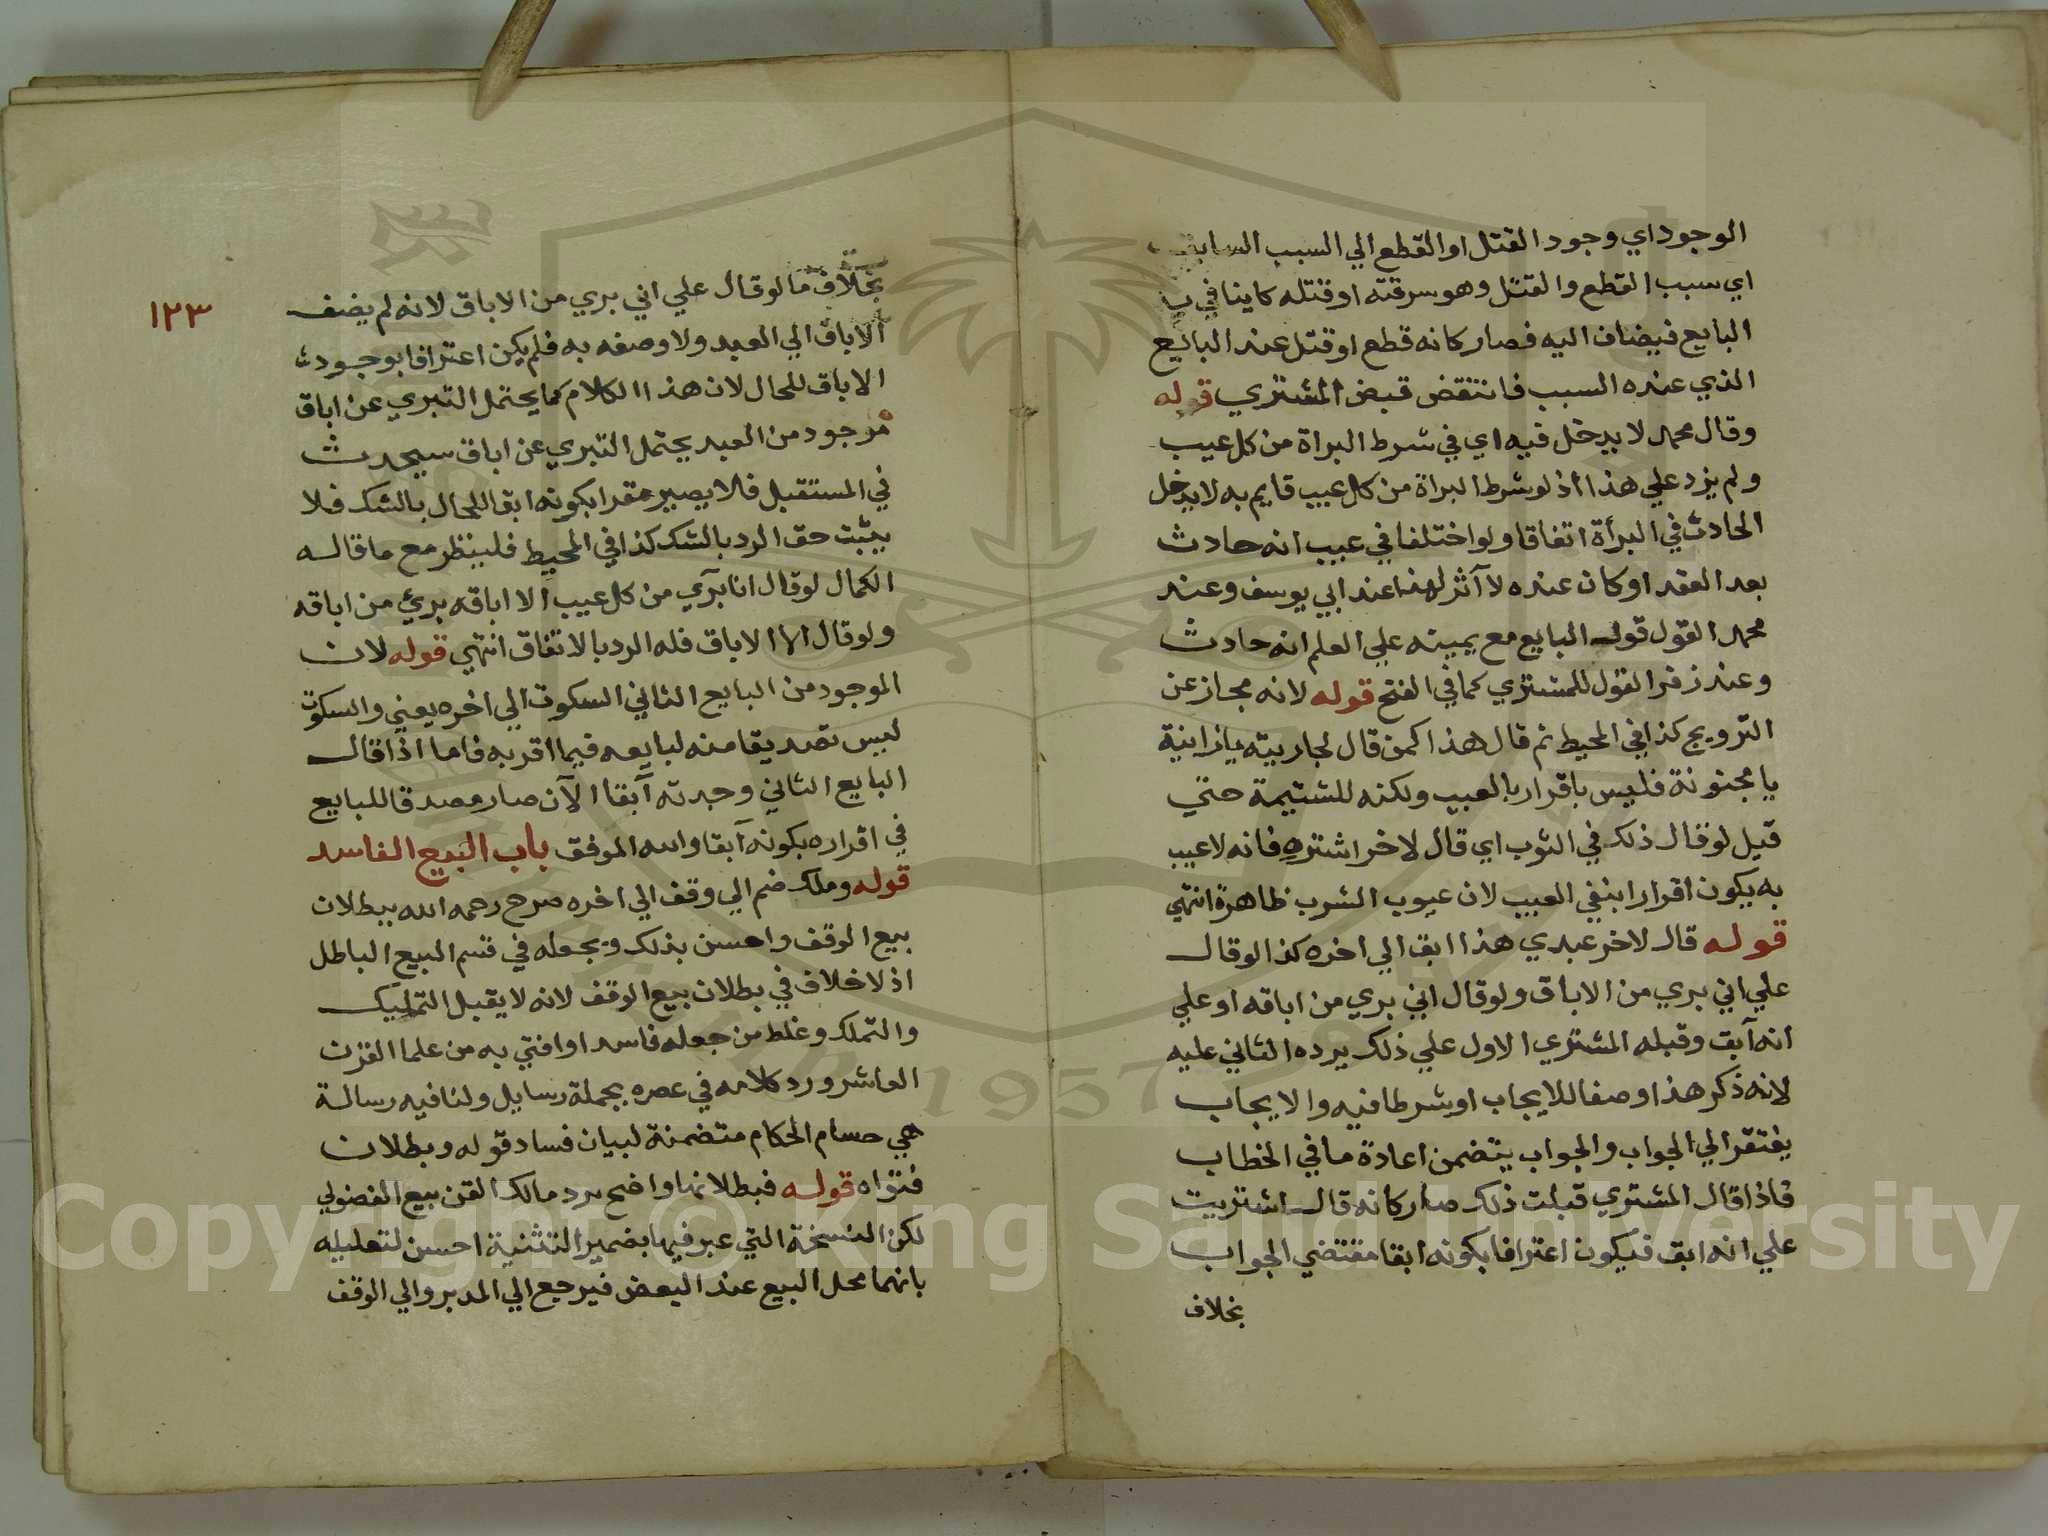 الوجود اي وجود القتل او القطع الي السبب السابق
اي سبب القطع والقتل وهو سرقته او قتله كاينا في يد
البايع فيضاف اليه فصار كانه قطع او قتل عند البايع
الذي عنده السبب فانتقض قبض المشتري قوله
وقال محمد لا يدخل فيه اي في شرط البراة من كل عيب
ولم يزد علي هذا اذ لو شرط البراة من كل عيب قايم به لا يدخل
الحادث في البرأة اتفاقا ولو اختلفا في عيب انه حادث
بعد العقد او كان عنده لا آثر لهذا عند ابي يوسف وعند
محمد القول قول البايع مع يمينه علي العلم انه حادث
وعند زفر القول للمشتري كما في الفتح قوله لانه مجاز عن
الترويج كذا في المحيط ثم قال هذا كمن قال لجاريته يا زانية
يا مجنونة فليس باقرار بالعيب ولكنه للشتيمة حتي
قيل لو قال ذلك في الثوب اي قال لاخر اشتره فانه لا عيب
به يكون اقرارا بنفي العيب لان عيوب الشرب ظاهرة انتهي
قوله قال لاخر عبدي هذا ابق الي اخره كذا لو قال
علي اني بري من الاباق ولو قال اني بري من اباقه او علي
انه آبق وقبله المشتري الاول علي ذلك يرده الثاني عليه
لانه ذكر هذا وصفا للايجاب او شرطا فيه والايجاب
يفتقر الي الجواب والجواب يتضمن اعادة ما في الخطاب
فاذا قال المشتري قبلت ذلك صار كانه قال اشتريت
علي انه ابق فيكون اعترافا بكونه ابقا مقتضي الجواب
بخلاف
١٢٣
بخلاف ما لو قال علي اني بري من الاباق لانه لم يضف
الاباق الي العبد ولا وصفه به فلم يكن اعترافا بوجود
الاباق للحال لان هذا الكلام كما يحتمل التبري عن اباق
موجود من العبد يحتمل التبري عن اباق سيحدث
في المستقبل فلا يصير مقرا بكونه ابقا للحال بالشك فلا
يثبت حق الرد بالشك كذا في المحيط فلينظر مع ما قاله
الكمال لو قال انا بآري من كل عيب الا اباقه بريء من اباقه
ولو قال الا الاباق فله الرد بالاتفاق انتهي قوله لان
الموجود من البايع الثاني السكوت الي اخره يعني والسكوت
ليس تصديقا منه لبايعه فيما اقر به فاما اذا قال
البايع الثاني وجدته آبقا الآن صار مصدقا للبايع
في اقراره بكونه آبقا والله الموفق باب البيع الفاسد
قوله وملك ضم الي وقف الي اخره صرح رحمه الله ببطلان
بيع الوقف واحسن بذلك ويجعله في قسم البيع الباطل
اذ لا خلاف في بطلان بيع الوقف لانه لا يقبل التمليك
والتملك وغلط من جعله فاسدا وافتي به من علما القرن
العاشر ورد كلامه في عصره بجملة رسايل ولنا فيه رسالة
هي حسام الحكام متضمنة لبيان فساد قوله وبطلان
فتواه قوله فبطلانها واضح يرد مالك القن بيع الفضولي
لكن النسخة التي عبر فيها بضمير التثنية احسن لتعليله
بانهما محل البيع عند البعض فيرجع الي المدبر والي الوقف
Copyright © King Saud University
1957